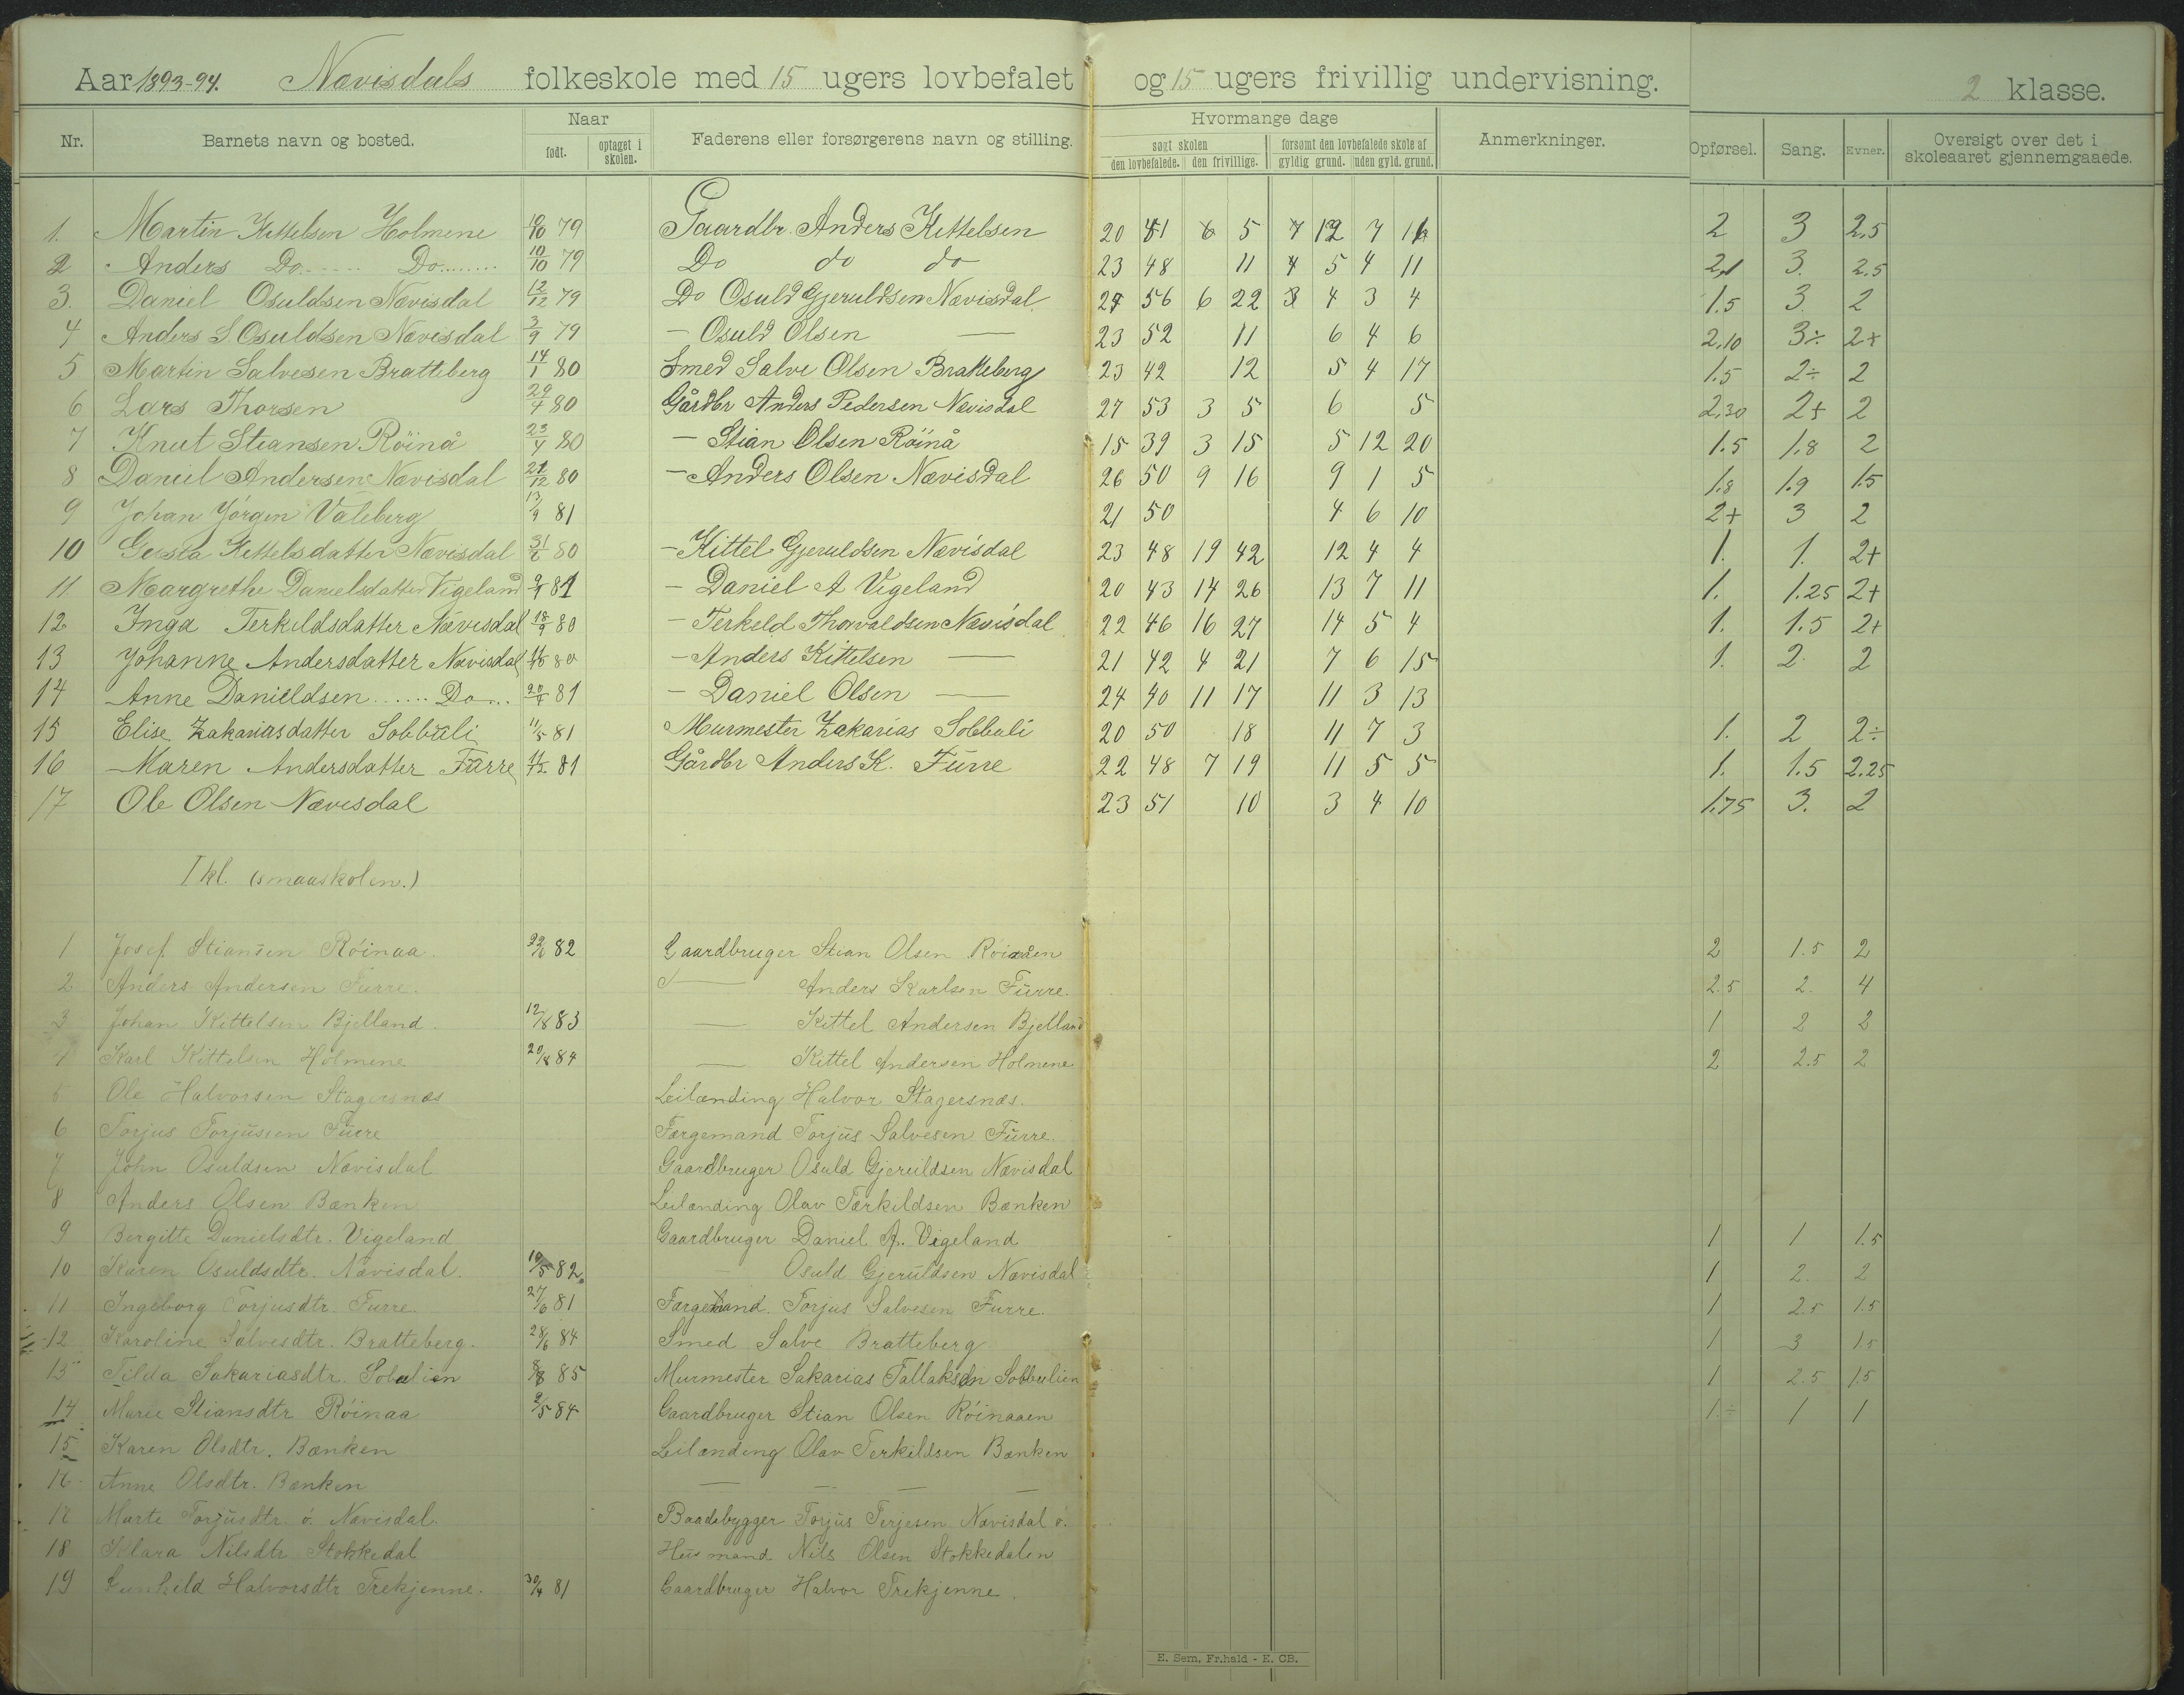 Aar 1893-94. Nævisdals folkeskole med 15 ugers lovbefalet og 15 ugers frivillig undervisning. 2 klasse.
Nr. Barnets navn og bosted. Naar Faderens eller forsørgerens navn og stilling. Hvormange dage Anmerkninger. Opførsel. Sang. Evner. Oversigt over det i skoleaaret gjennemgaaede.
født. optaget i skolen. søgt skolen forsømt den lovbefalede skole af
den lovbefalede. den frivillige. gyldig grund. uden gyld. grund.
1. Martin Kittelsen Holmene 10/10 79 Gaardbr. Anders Kittelsen 20 41 6 5 7 12 7 16 2 3 2.5
2 Anders Do Do 10/10 79 Do do do 23 48 11 4 5 4 11 2,1 3. 2.5
3. Daniel Osuldsen Nævisdal 12/12 79 Do Osuld Gjeruldsen Nævisdal 27 56 6 22 3 4 3 4 1.5 3. 2
4 Anders S. Osuldsen Nævisdal 3/9 79 — Osuld Olsen — 23 52 11 6 4 6 2,10 3÷ 2+
5 Martin Salvesen Bratteberg 14/1 80 Smed Salve Olsen Bratteberg 23 42 12 5 4 17 1.5 2÷ 2
6 Lars Thorsen 29/4 80 Gårdbr Anders Pedersen Nævisdal 27 53 3 5 6 5 2,30 2+ 2
7 Knut Stiansen Röinå 23/4 80 — Stian Olsen Röinå 15 39 3 15 5 12 20 1.5 1.8 2
8 Daniel Andersen Nævisdal 21/12 80 — Anders Olsen Nævisdal 26 50 9 16 9 1 5 1.8 1.9 1.5
9 Johan Jörgen Valeberg 13/9 81 21 50 4 6 10 2+ 3 2
10 Gusta Kittelsdatter Nævisdal 31/6 80 — Kittel Gjeruldsen Nævisdal 23 48 19 42 12 4 4 1. 1. 2+
11 Margrethe Danielsdatter Vigeland 9/9 81 — Daniel A Vigeland 20 43 14 26 13 7 11 1. 1.25 2+
12 Inga Terkildsdatter Nævisdal 18/9 80 — Terkeld Thorvaldsen Nævisdal 22 46 16 27 14 5 4 1. 1.5 2+
13 Johanne Andersdatter Nævisdal 80 — Anders Kittelsen — 21 42 4 21 7 6 15 1. 2 2
14 Anne Danieldsen Do 81 — Daniel Olsen — 24 40 11 17 11 3 13
15 Elise Zakariasdatter Sobbuli 11/5 81 Murmester Zakarias Sobbuli 20 50 18 11 7 3 1. 2 2÷
16 Maren Andersdatter Furre 81 Gårdbr Anders K. Furre 22 48 7 19 11 5 5 1. 1.5 2.25
17 Ole Olsen Nævisdal 23 51 10 3 4 10 1.75 3. 2
I kl. (smaaskolen.)
1 Josef Stiansen Röinaa. 82 Gaardbruger Stian Olsen Röinåen 2 1.5 2
2 Anders Andersen Furre. — Anders Karlsen Furre. 2.5 2. 4
3 Johan Kittelsen Bjelland. 12/8 83 — Kittel Andersen Bjelland 1 2 2
4 Karl Kittelsen Holmene 20/8 84 — Kittel Andersen Holmene 2 2.5 2
5 Ole Halvorsen Stagersnæs Leilænding Halvor Stagersnæs.
6 Torjus Torjussen Furre Færgemand Torjus Salvesen Furre.
7 John Osuldsen Nævisdal Gaardbruger Osuld Gjeruldsen Nævisdal
8 Anders Olsen Bænken Leilænding Olav Tærkildsen Bænken
9 Bergitte Danielsdtr. Vigeland Gaardbruger Daniel A. Vigeland 1 1 1.5
10 Karen Osuldsdtr. Nævisdal. 10/5 82. — Osuld Gjeruldsen Nævisdal 1 2. 2
11 Ingeborg Torjusdtr. Furre. 27/6 81 Færgemand. Torjus Salvesen Furre. 1 2.5 1.5
12 Karoline Salvesdtr. Bratteberg. 28/6 84 Smed Salve Bratteberg 1 3 1.5
13 Tilda Sakariasdtr. Sobulien 8/8 85 Murmester Sakarias Tallaksen Sobbulien 1 2.5 1.5
14 Marie Stiansdtr Röinaa 2/5 84 Gaardbruger Stian Olsen Röinaaen 1.÷ 1 1
15 Karen Olsdtr. Bænken Leilænding Olav Terkildsen Bænken
16 Anne Olsdtr. Bænken — — —
17 Marte Torjusdtr. ö. Nævisdal. Baadebygger Torjus Terjesen Nævisdal ö.
18 Klara Nilsdtr Stokkedal Husmand Nils Olsen Stokkedalen
19 Gunhild Halvorsdtr Trekjenne. 30/4 81 Gaardbruger Halvor Trekjenne.
E. Sem, Fr.hald - E. CB.